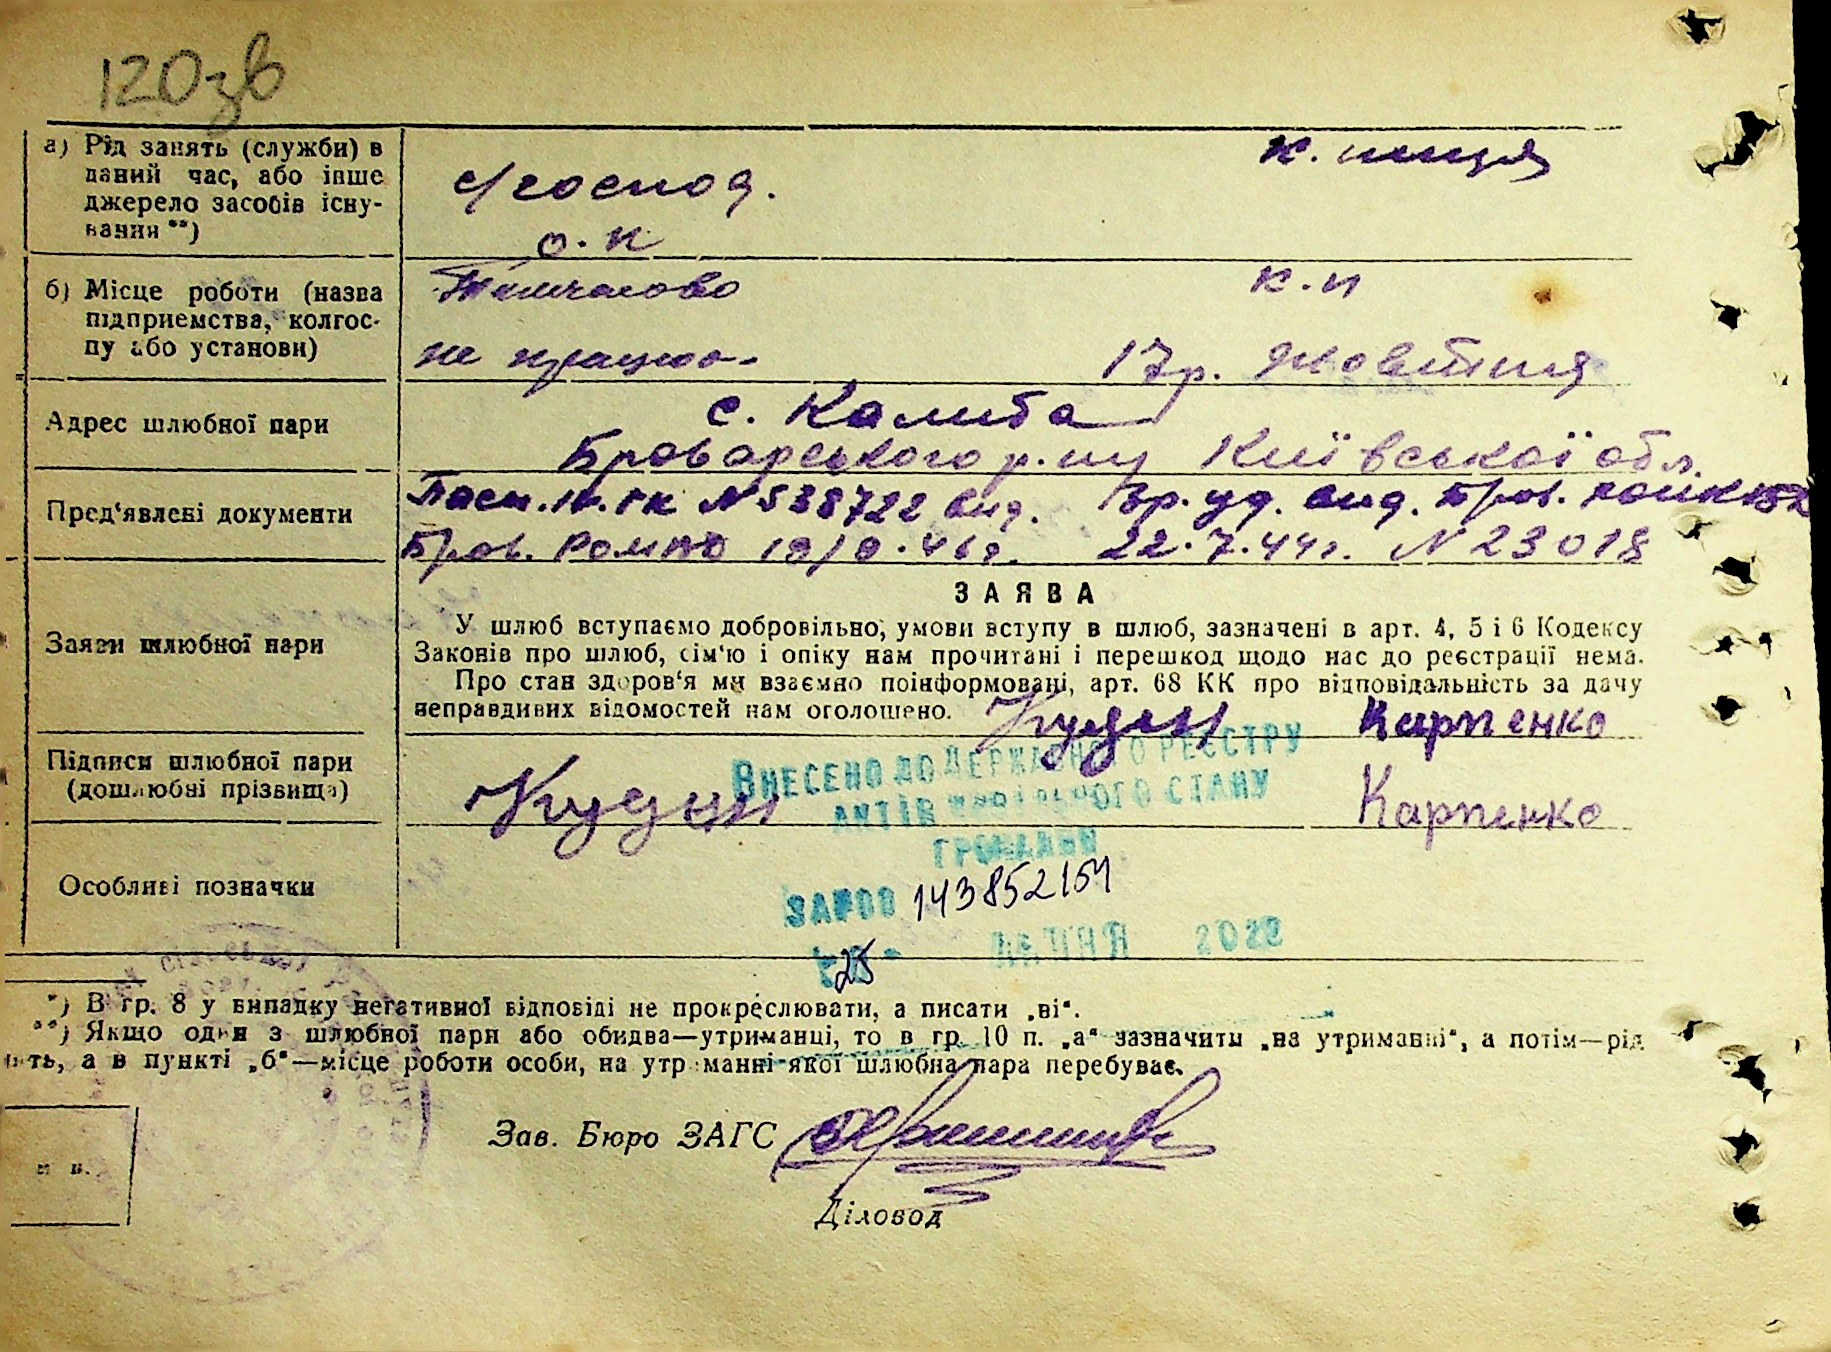 120зв
а) Рід занять (служби) в
даний час, або інше
джерело засобів існу-
вання **)
с/господ.
о. к
к. ниця
б) Місце роботи (назва
підприємства, колгос-
пу або установи)
Тимчасово
не працює
к. н
17р. Жовтня
Адрес шлюбної пари
с. Калита
Броварського р. ну Київської обл.
Пред‘явлені документи
Пасп. N 538722 вид.
Бров. 19/9. 46г.
Вр. уд. вид. Бров.
22. 7. 44г. N 23018
Заяви шлюбної пари
ЗАЯВА
У шлюб вступаємо добровільно; умови вступу в шлюб, зазначені в арт. 4, 5 і 6 Кодексу
Законів про шлюб, сім‘ю і опіку нам прочитані і перешкод щодо нас до реєстрації нема.
Про стан здоров‘я ми взаємно поінформовані, арт. 68 КК про відповідальність за дачу
неправдивих відомостей нам оголошено.
Кудин Карпенко
Підписи шлюбної пари
(дошлюбні прізвища)
Кудин Карпенко
ВНЕСЕНО ДО ДЕРЖАВНОГО РЕЄСТРУ
АКТІВ ЦИВІЛЬНОГО СТАНУ
ГРОМАДЯН
Особливі позначки
ЗА №00 143852154
25 2022
*) В гр. 8 у випадку негативної відповіді не прокреслювати, а писати „ні“.
**) Якщо один з шлюбної пари або обидва—утриманці, то в гр. 10 п. „а“ зазначити „на утриманні“, а потім—рід
нять, а в пункті „б“—місце роботи особи, на утриманні якої шлюбна пара перебуває.
Зав. Бюро ЗАГС
Діловод